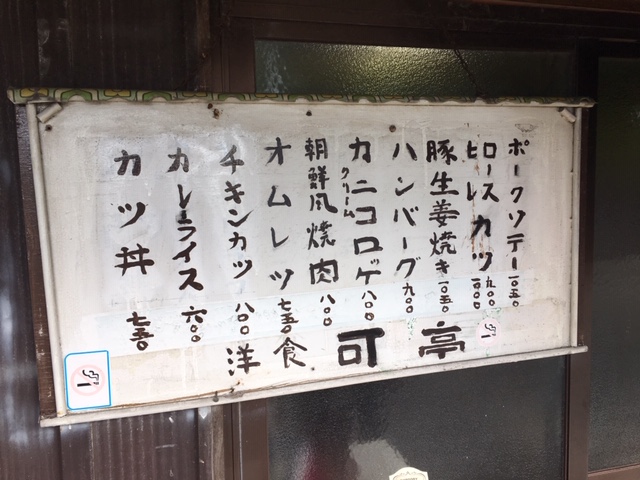 ポークソテー 一〇五〇
ロース ヒレ カツ 九〇〇 一〇〇〇
豚生姜焼き 一〇五〇
ハンバーグ 九〇〇
カニクリームコロッケ 八〇〇
朝鮮風焼肉 八〇〇
オムレツ 七五〇
チキンカツ 八〇〇
カレーライス 六〇〇
カツ丼 七五〇
洋食 可亭